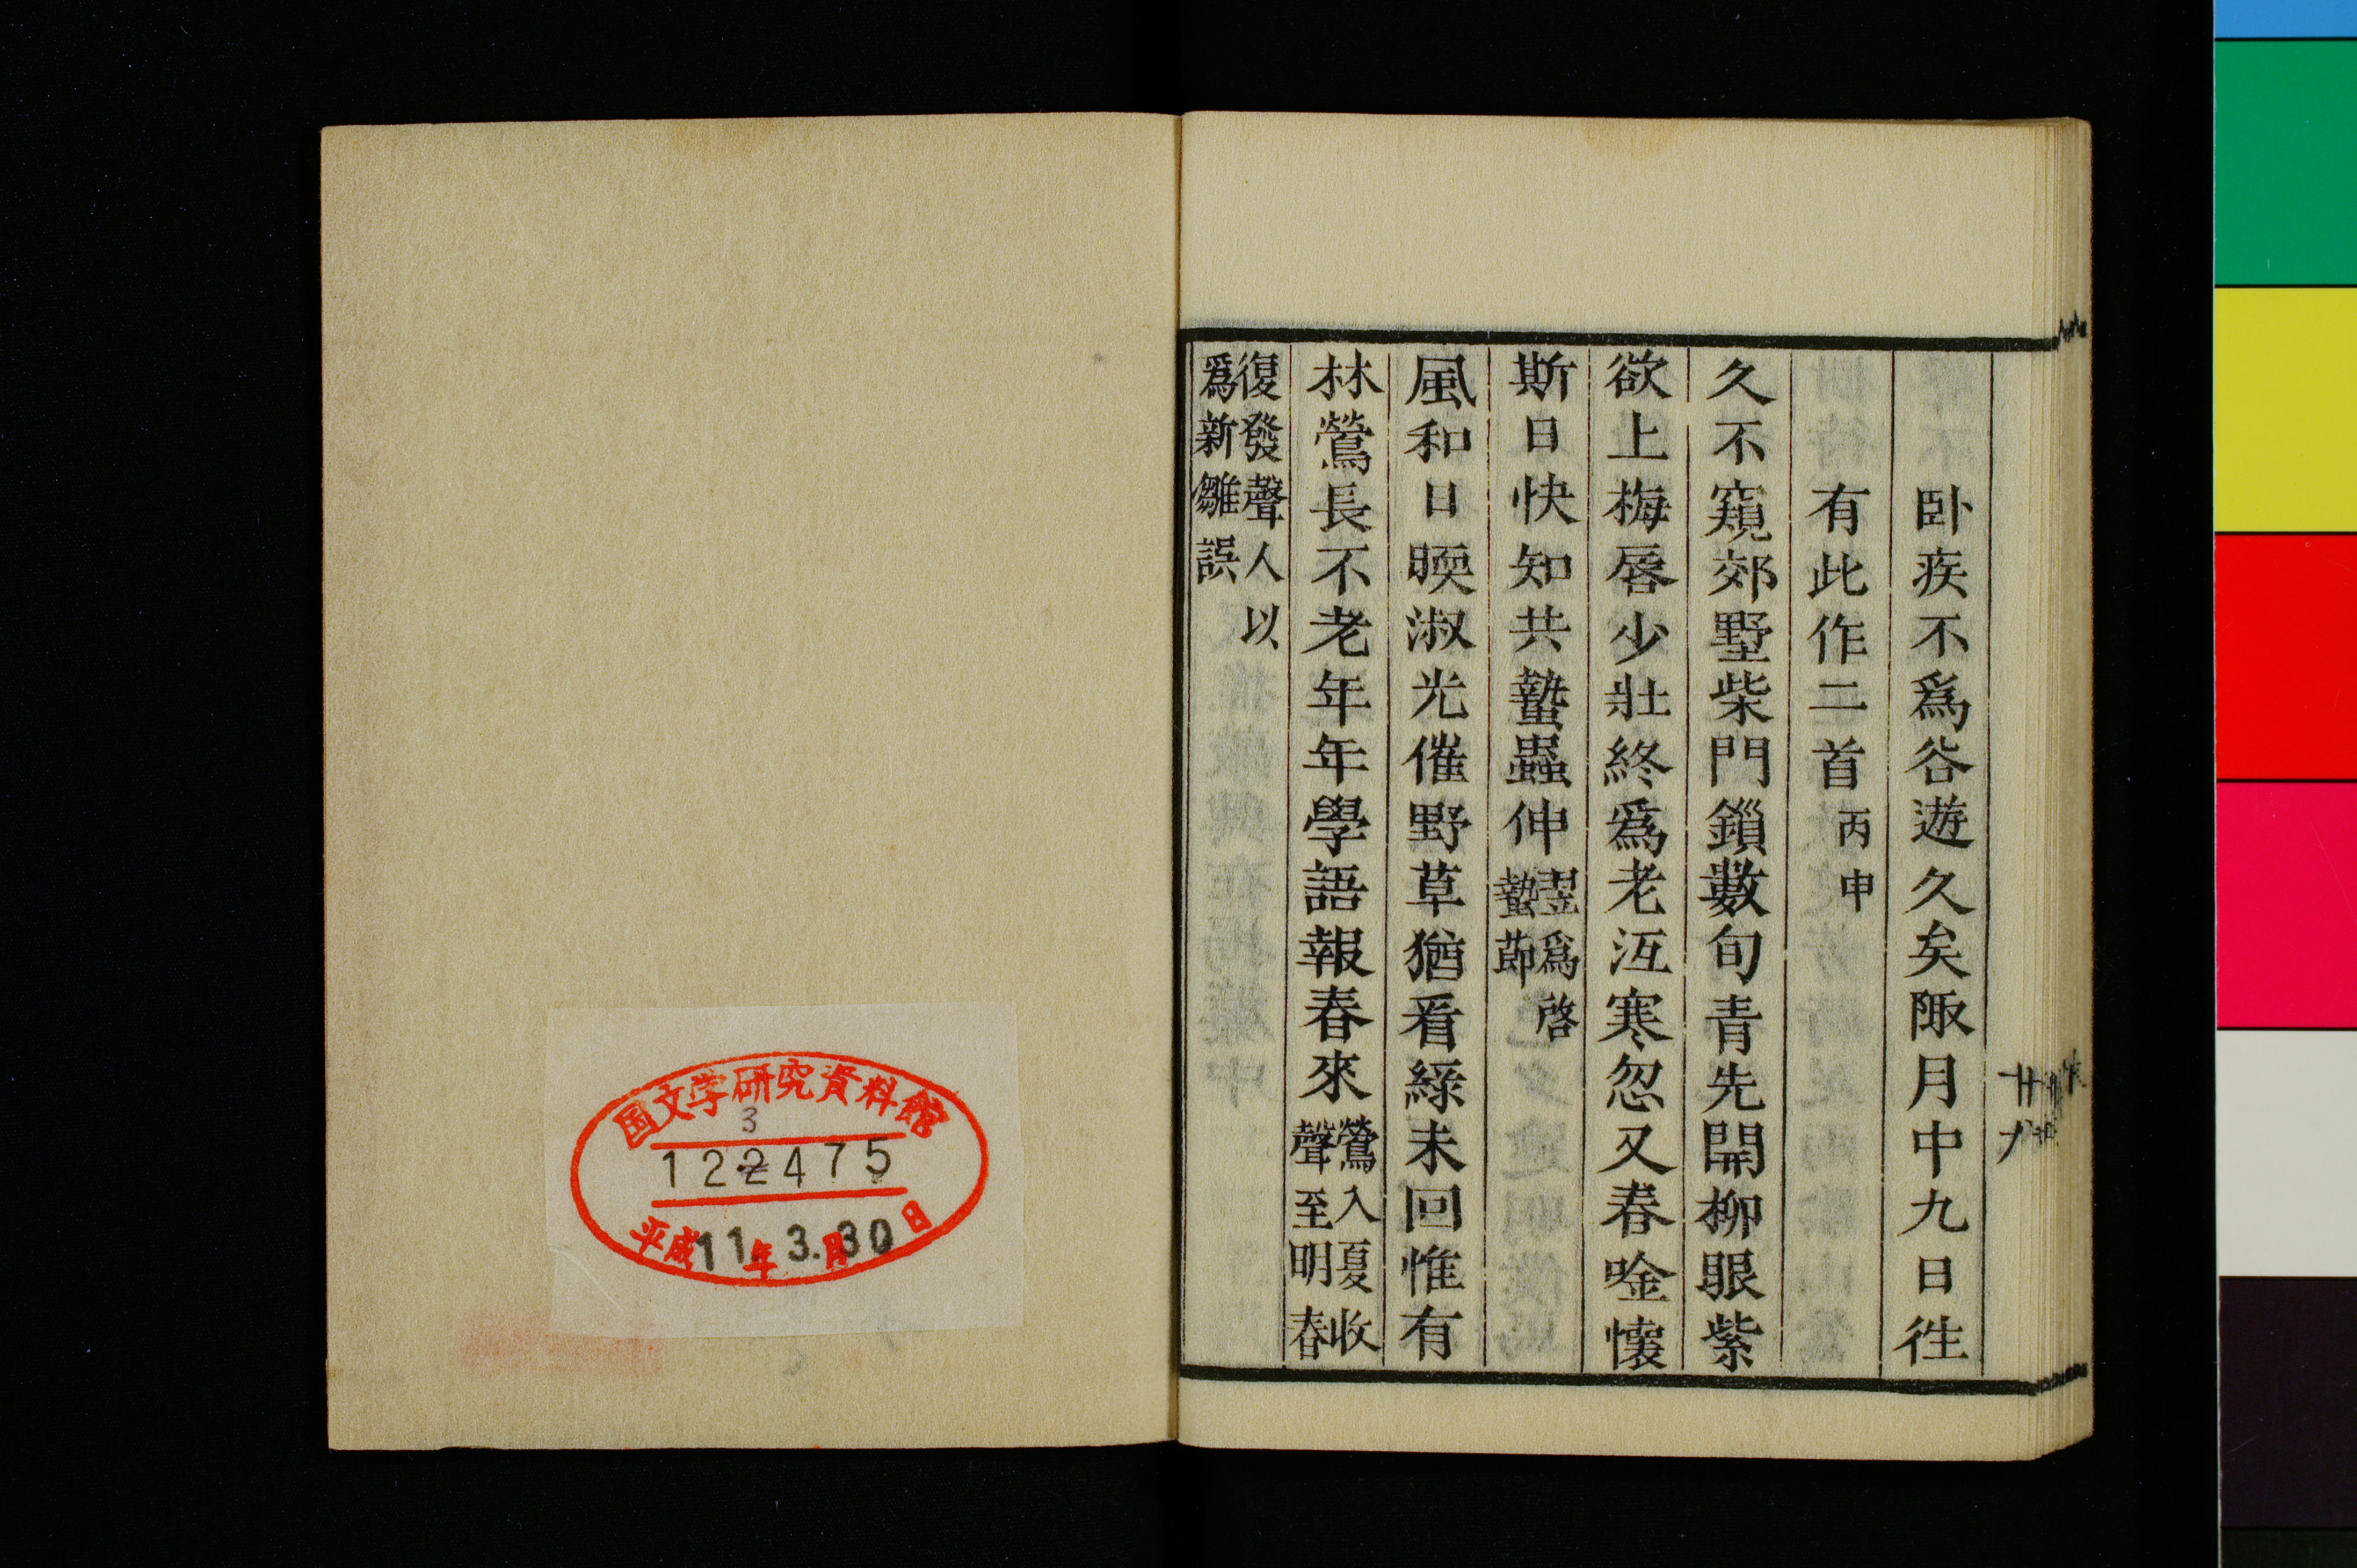 臥疾不爲谷遊久矣陬月中九日往
有此作二首丙申
久不窺郊墅柴門鎖數旬青先開柳眼紫
欲上梅唇少壯終爲老沍寒忽又春唫懷
斯日快知共蟄蟲伸翌爲啓
蟄節
風和日暎淑光催野草猶看綠未回惟有
林鶯長不老年年學語報春來鶯入夏收
聲至明春
復發聲人以
爲新雛誤
廿九
国文学研究資料館
3
122475
平成11年3.月30日